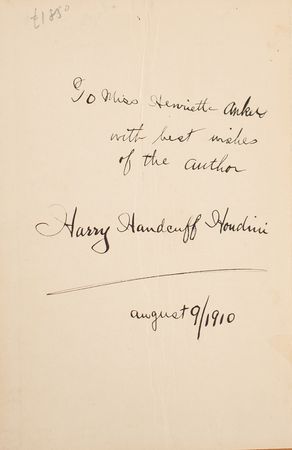 £1850
To Miss Henrietta Anker
with best wishes
of the author
Harry Handcuff Houdini
august 9/1910